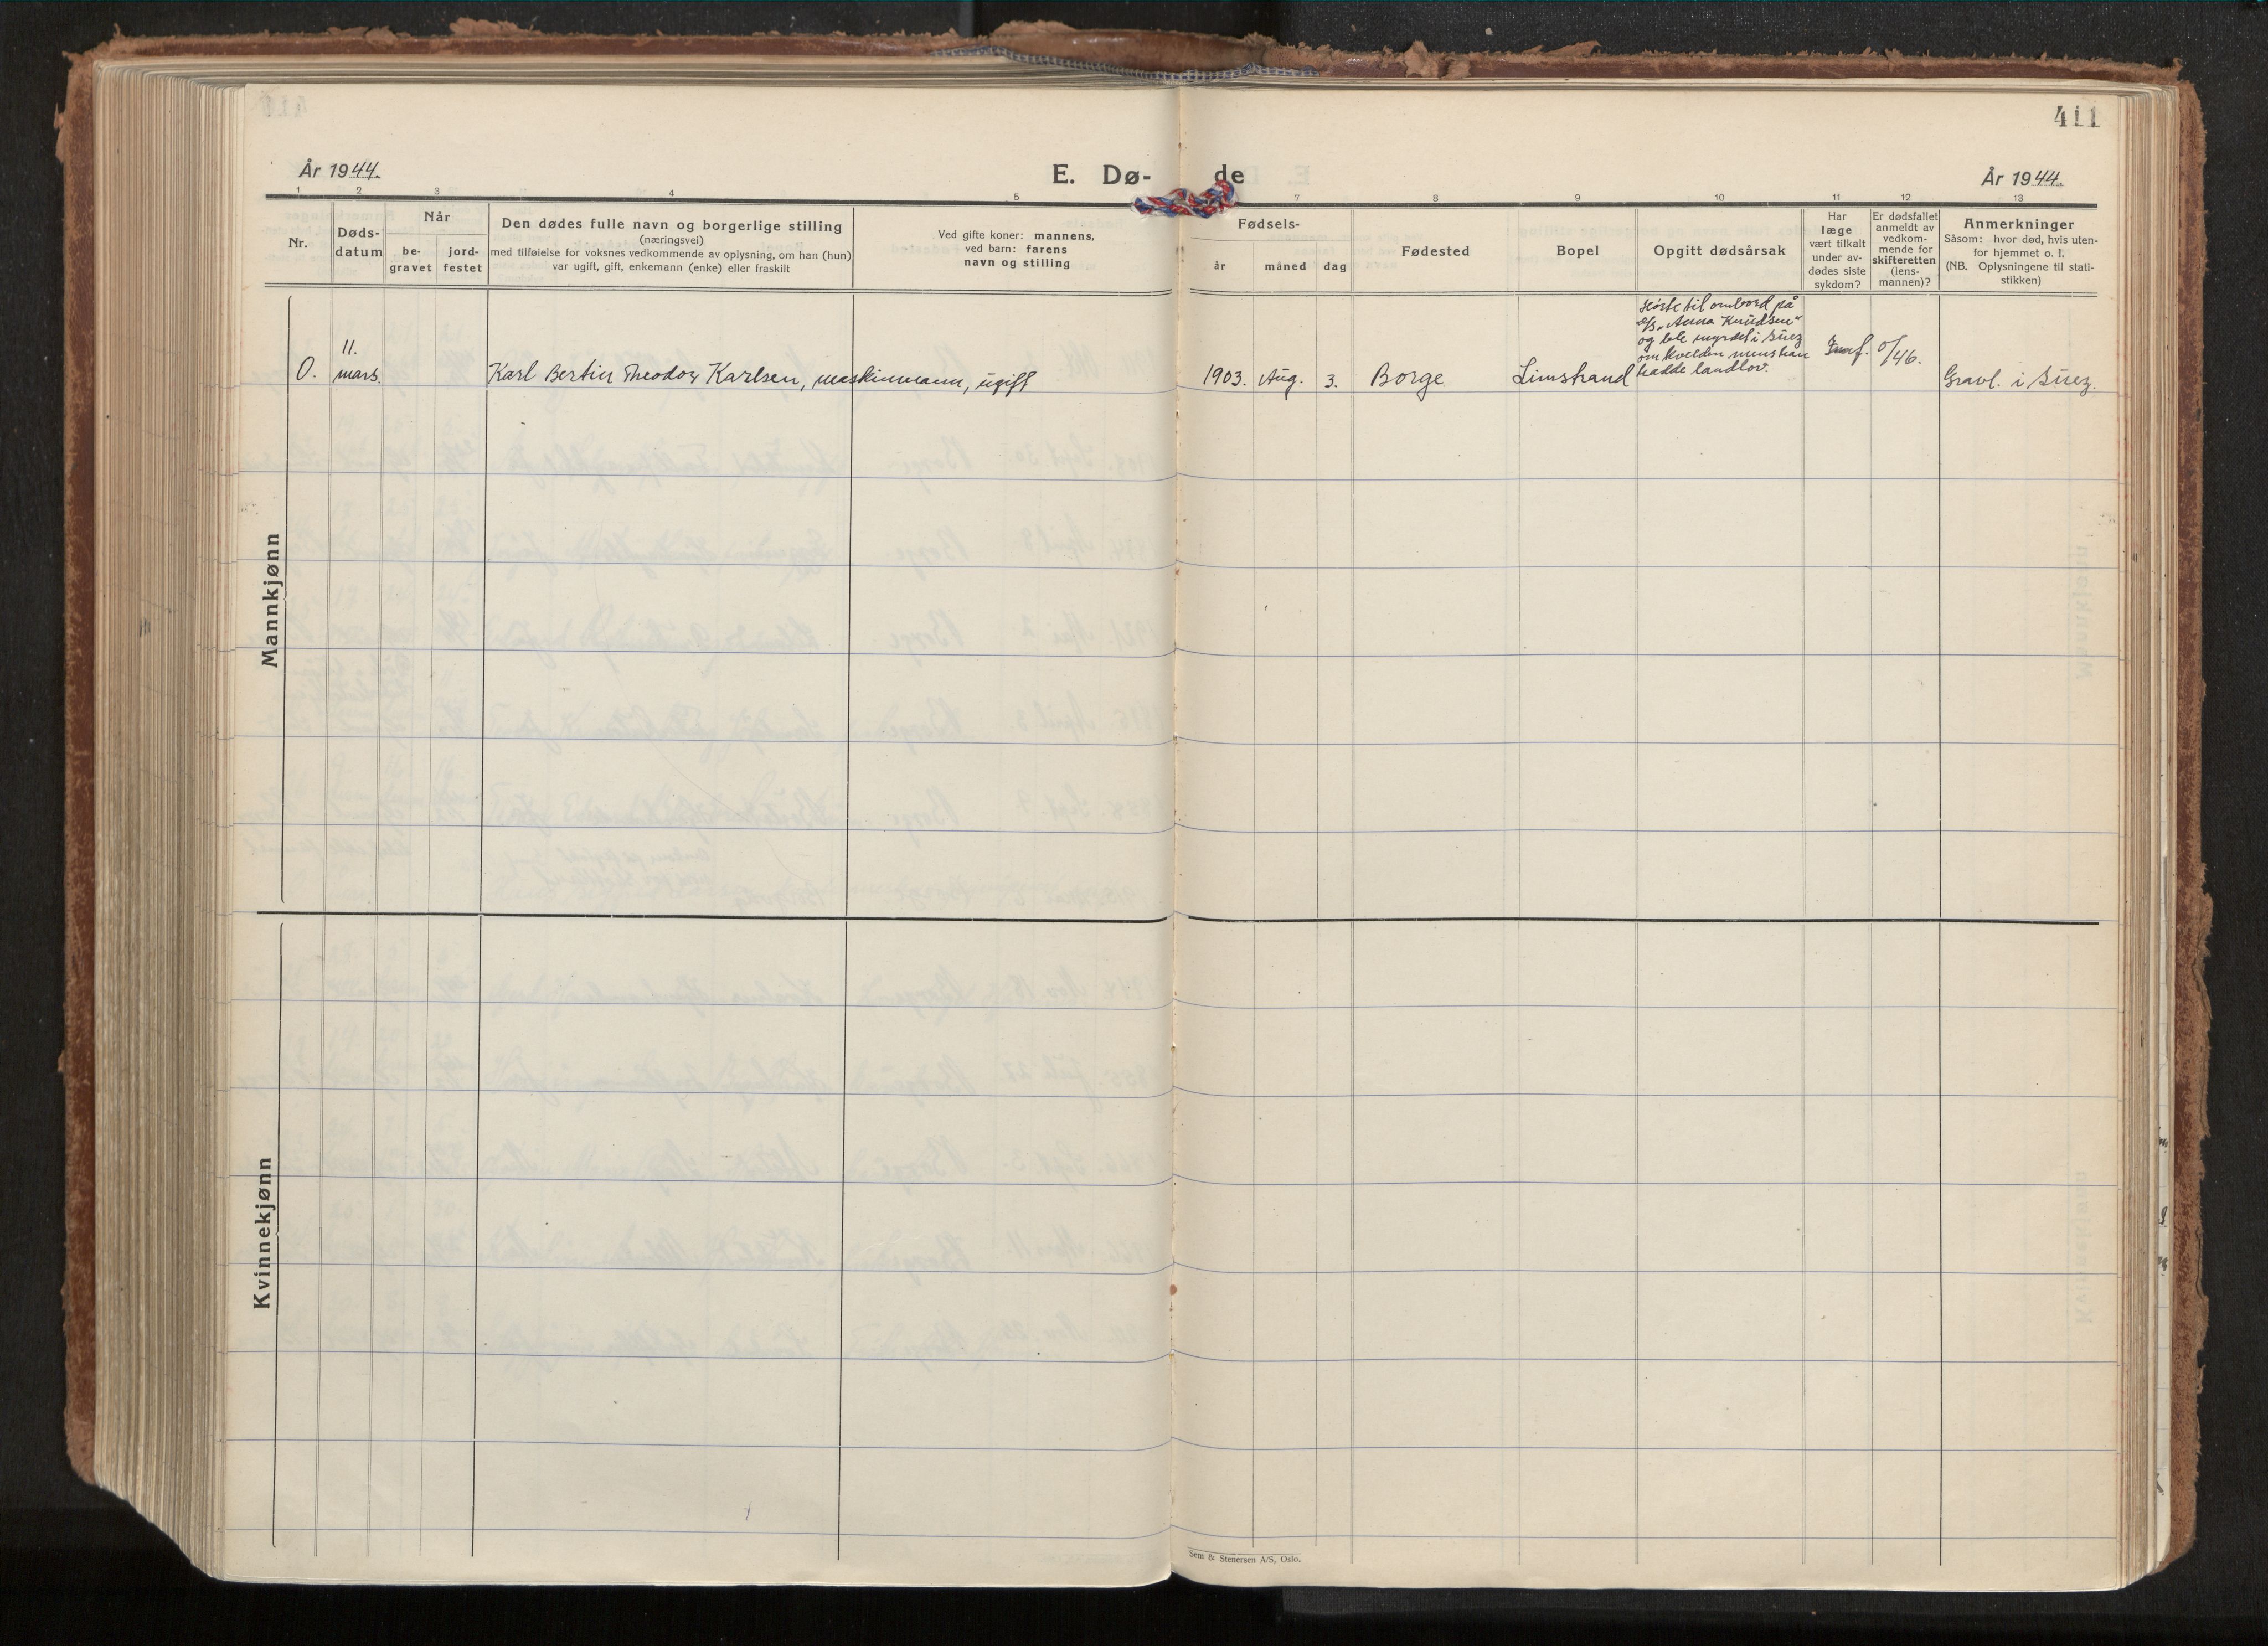 411
År 1944.
E. Dø-
de
År 1944.
1
2
3
4
5
7
8
9
10
11
12
13
Nr.
Døds-
datum
Når
be-
gravet
jord-
festet
Den dødes fulle navn og borgerlige stilling
(næringsvei)
med tilføielse for voksnes vedkommende av oplysning, om han (hun)
var ugift, gift, enkemann (enke) eller fraskilt
Ved gifte koner: mannens,
ved barn: farens
navn og stilling
Fødsels-
år
måned
dag
Fødested
Bopel
Opgitt dødsårsak
Har
læge
vært tilkalt
under av-
dødes siste
sykdom?
Er dødsfallet
anmeldt av
vedkom-
mende for
skifteretten
(lens-
mannen)?
Anmerkninger
Såsom: hvor død, hvis uten-
for hjemmet o. l.
(NB. Oplysningene til stati-
stikken)
Mannkjønn
0.
11.
mars.
Karl Bertin Theodor Karlsen, maskinmann, ugift
1903.
Aug.
3.
Borge
Limstrand
Hørte til ombord på
"Anna Knudsen"
og ble myrdet i Suez
om kvelden mens han
hadde landlov.
0/46.
Gravl. i Suez.
Kvinnekjønn
Sem & Stenersen A/S, Oslo.